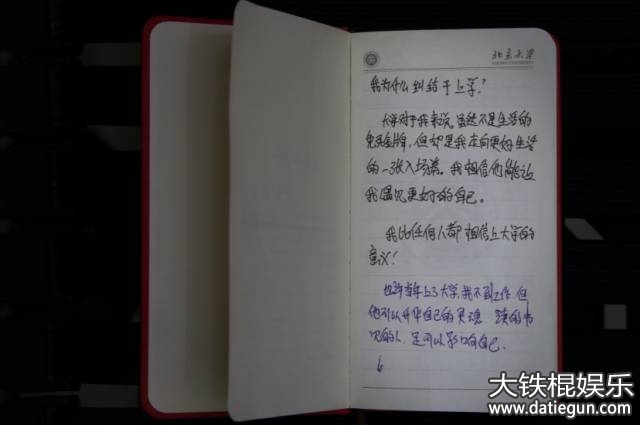 北京大学
我为什么纠结于上学?
大学对于我来说,虽然不是生活的
免死金牌,但却是我走向更好生活
的一张入场券。我相信他能让
我遇见更好的自己。
我比任何人都相信上大学的
意义!
也许当年上了大学,我不到工作,但
他可以升华自己的灵魂 读的书
见的人 是可以影响自己.
大铁棍娱乐
www.datiegun.com